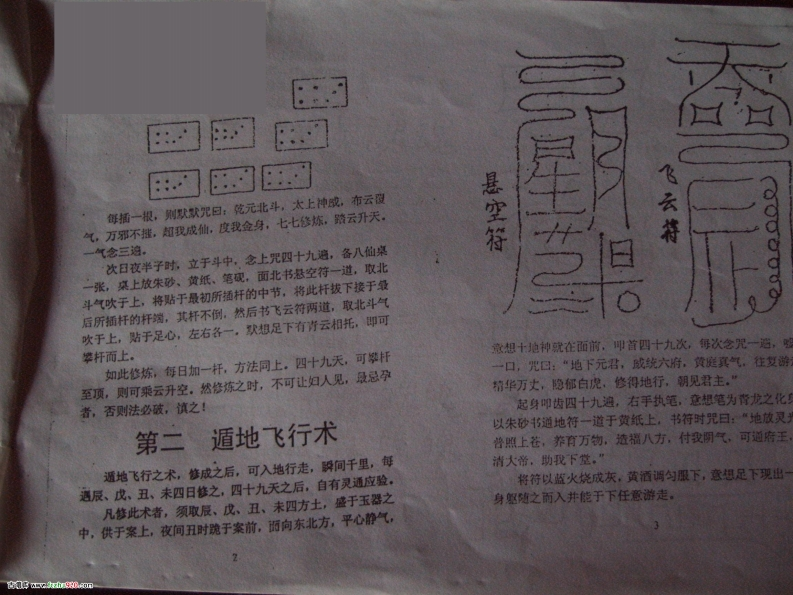 每插一根,则默默咒曰:乾元北斗,太上神威,布云留
气,万邪不摧,超我成仙,度我金身,七七修炼,踏云升天。
一气念三遍。
次日夜半子时,立于斗中,念上咒四十九遍,备八仙桌
一张,桌上放朱砂、黄纸、笔砚,面北书悬空符一道,取北
斗气吹于上,将贴于最初所插杆的中节,将此杆拔下接于最
后所插杆的杆端,其杆不倒,然后书飞云符两道,取北斗气
吹于上,贴于足心,左右各一。默想足下有青云相托,即可
攀杆而上。
如此修炼,每日加一杆,方法同上。四十九天,可攀杆
至顶,则可乘云升空。然修炼之时,不可让妇人见,最忌孕
者,否则法必破,慎之!
第二 遁地飞行术
遁地飞行之术,修成之后,可入地行走,瞬间千里,每
遇辰、戊、丑、未四日修之,四十九天之后,自有灵通应验。
凡修此术者,须取辰、戊、丑、未四方土,盛于玉器之
中,供于案上,夜间丑时跪于案前,面向东北方,平心静气,
2
悬空符
飞云符
意想土地神就在面前,叩首四十九次,每次念咒一遍,
一口,咒曰:“地下元君,威统六府,黄庭真气,往复游
精华万丈,隐郁白虎,修得地行,朝见君主。”
起身叩齿四十九遍,右手执笔,意想笔为青龙之化身
以朱砂书遁地符一道于黄纸上,书符时咒曰:“地放灵光
普照上苍,养育万物,造福八方,付我阴气,可通府王,
清大帝,助我下堂。”
将符以蓝火烧成灰,黄酒调匀服下,意想足下现出一
身躯随之而入并能于下任意游走。
3
古谱库 www.fozhu920.com